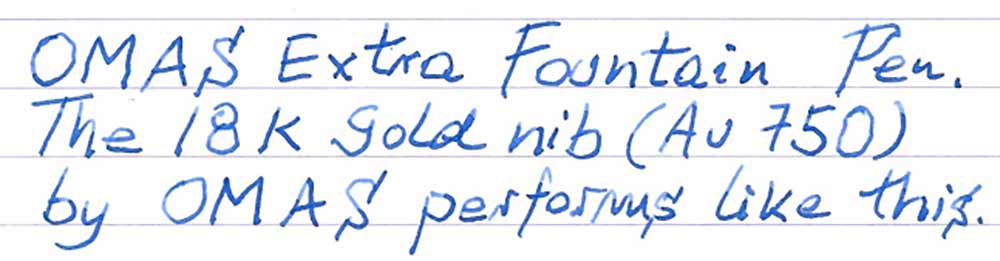 OMAS Extra Fountain Pen.
The 18K gold nib (Au 750)
by OMAS performs like this.